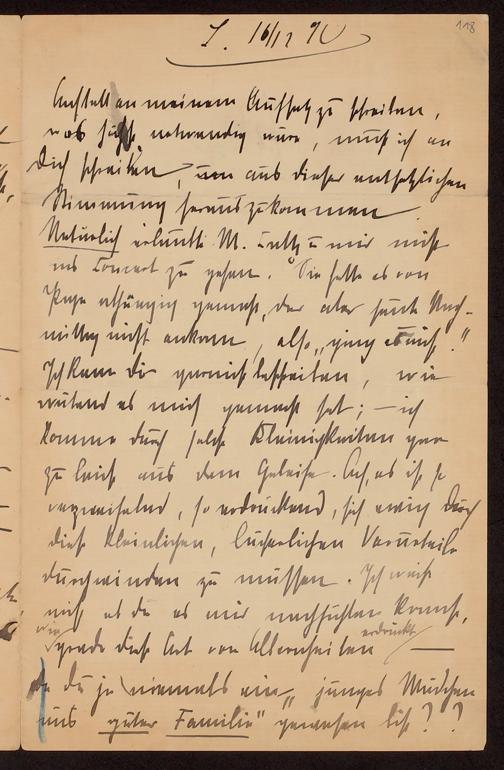 118
L. 16/12 90
Anstatt an meinem Aufsatz zu schreiben,
was sehr notwendig wäre, muß ich an
Dich schreiben, um aus dieser entsetzlichen
Stimmung herauszukommen.
Natürlich erlaubte M. mir nicht
ins Concert zu gehen. Sie hatte es von
Papa abhängig gemacht, der aber heute Nach-
mittag nicht ankam, also „ging es nicht."
Ich kann dir garnicht beschreiben, wie
wütend es mich gemacht hat; — ich
komme durch solche Kleinigkeiten ganz
zu leicht aus dem Geleise. Ach, es ist so
verzweifelnd, so erdrückend, sich ewig durch
diese kleinlichen, lächerlichen Vorurteile
durchwinden zu müssen. Ich weiß
nicht ob du es mir nachfühlen kannst,
wie grade diese Art von Albernheiten erdrückt —
da du ja niemals ein „junges Mädchen
aus guter Familie" gewesen bist? ?